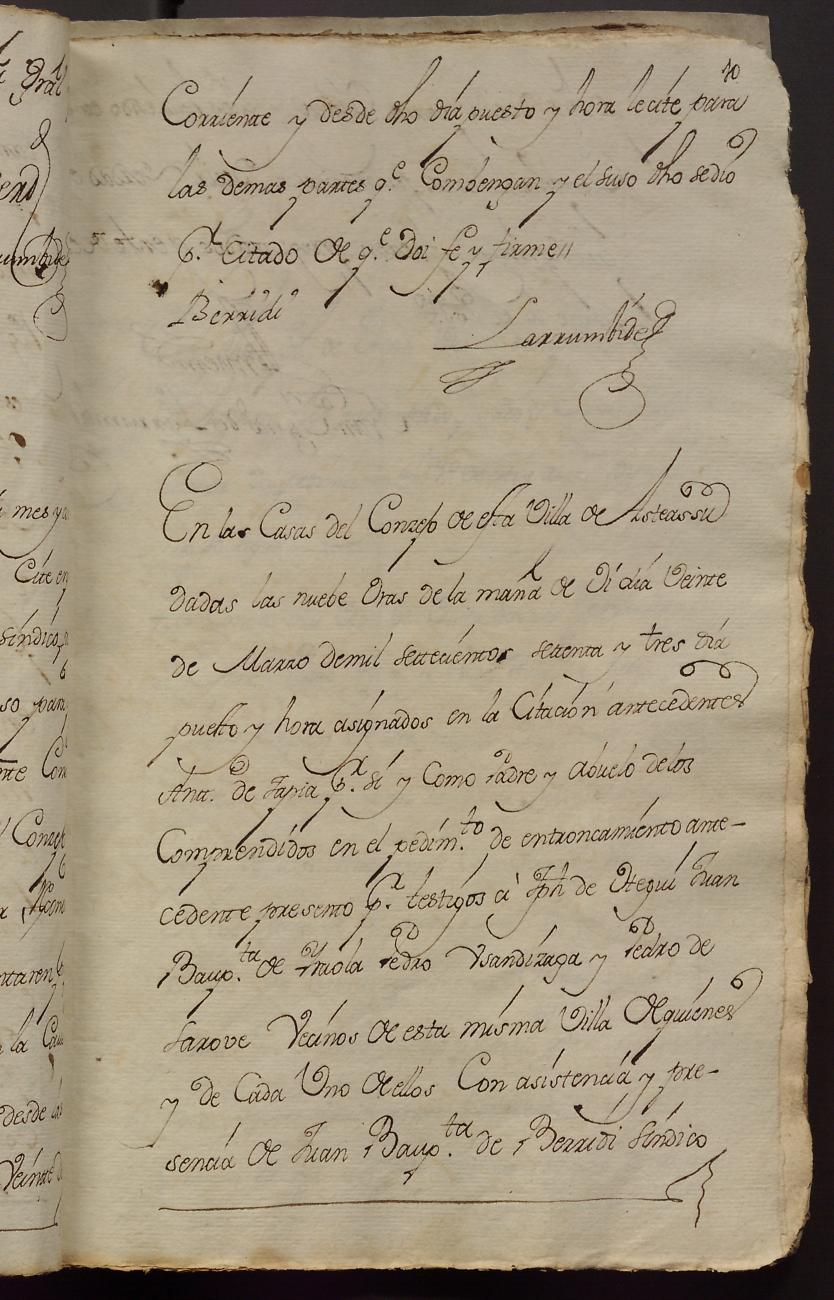 10
Corriente y desde dho dia puesto y hora le cite para
las demas partes q.e Combengan y el suso dho se dio
p.r Citado de q.e Doi fe y firme
Berridi
Larrumbide
En las Casas del Conzejo de esta Villa de Asteassu
dadas las nuebe Oras de la mañ.a de Oi dia Veinte
de Marzo de mil settecientos settenta y tres dia
puesto y hora asignados en la Citacion antecedentes
Antt. de Tapia p.r si y Como Padre y Abuelo de los
Comprendidos en el pedim.to de entroncamiento ante-
cedente presento p.r testigos a Jph de Otegui Juan
Baup.ta de Pedro Usandizaga y Pedro de
Sarove Vecinos de esta misma Villa de quienes
y de Cada Uno de ellos Con asistencia y pre-
sencia de Juan Baup.ta de Berridi Sindico